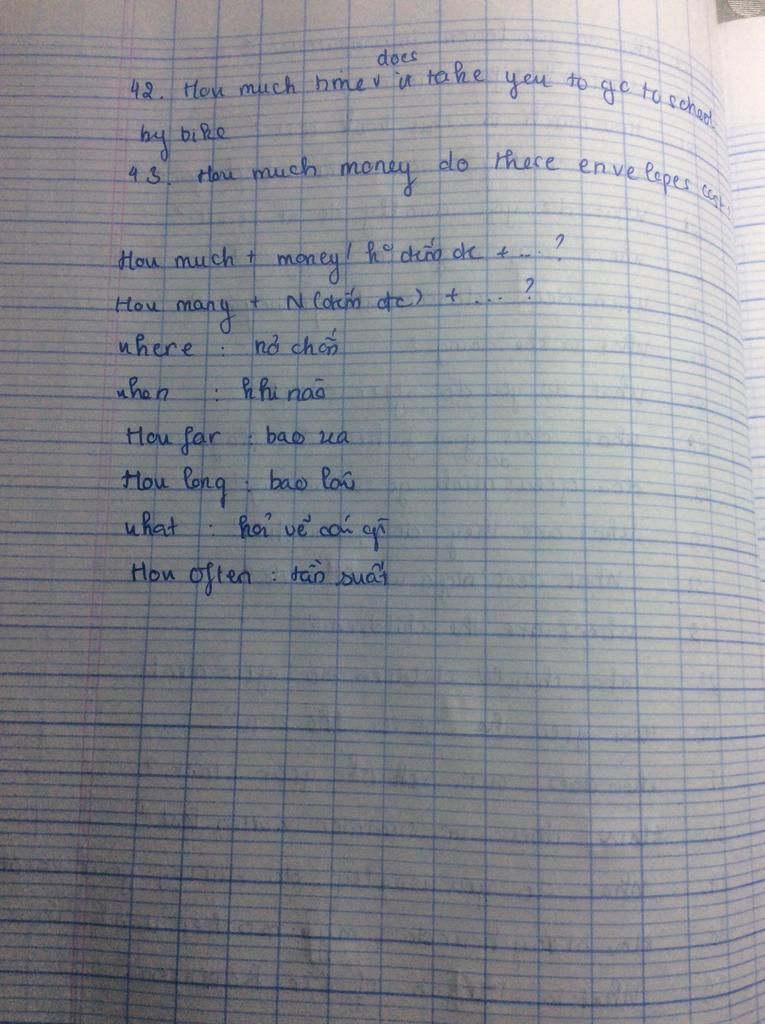 does
42. How much time v it take you to go to school
by bike
43. How much money do these envelopes cost
How much + money / ko đếm đc + ... ?
How many + N (đếm đc) + ... ?
where : nơi chốn
when : khi nào
How far : bao xa
How long : bao lâu
what : hỏi về cái gì
How often : tần suất